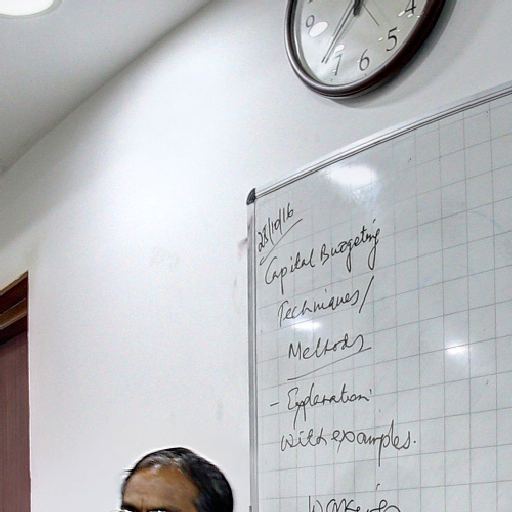 4
5
6
7
8
28/10/16
Capital Budgeting
Techniques/
Methods
- Explanation
with examples.